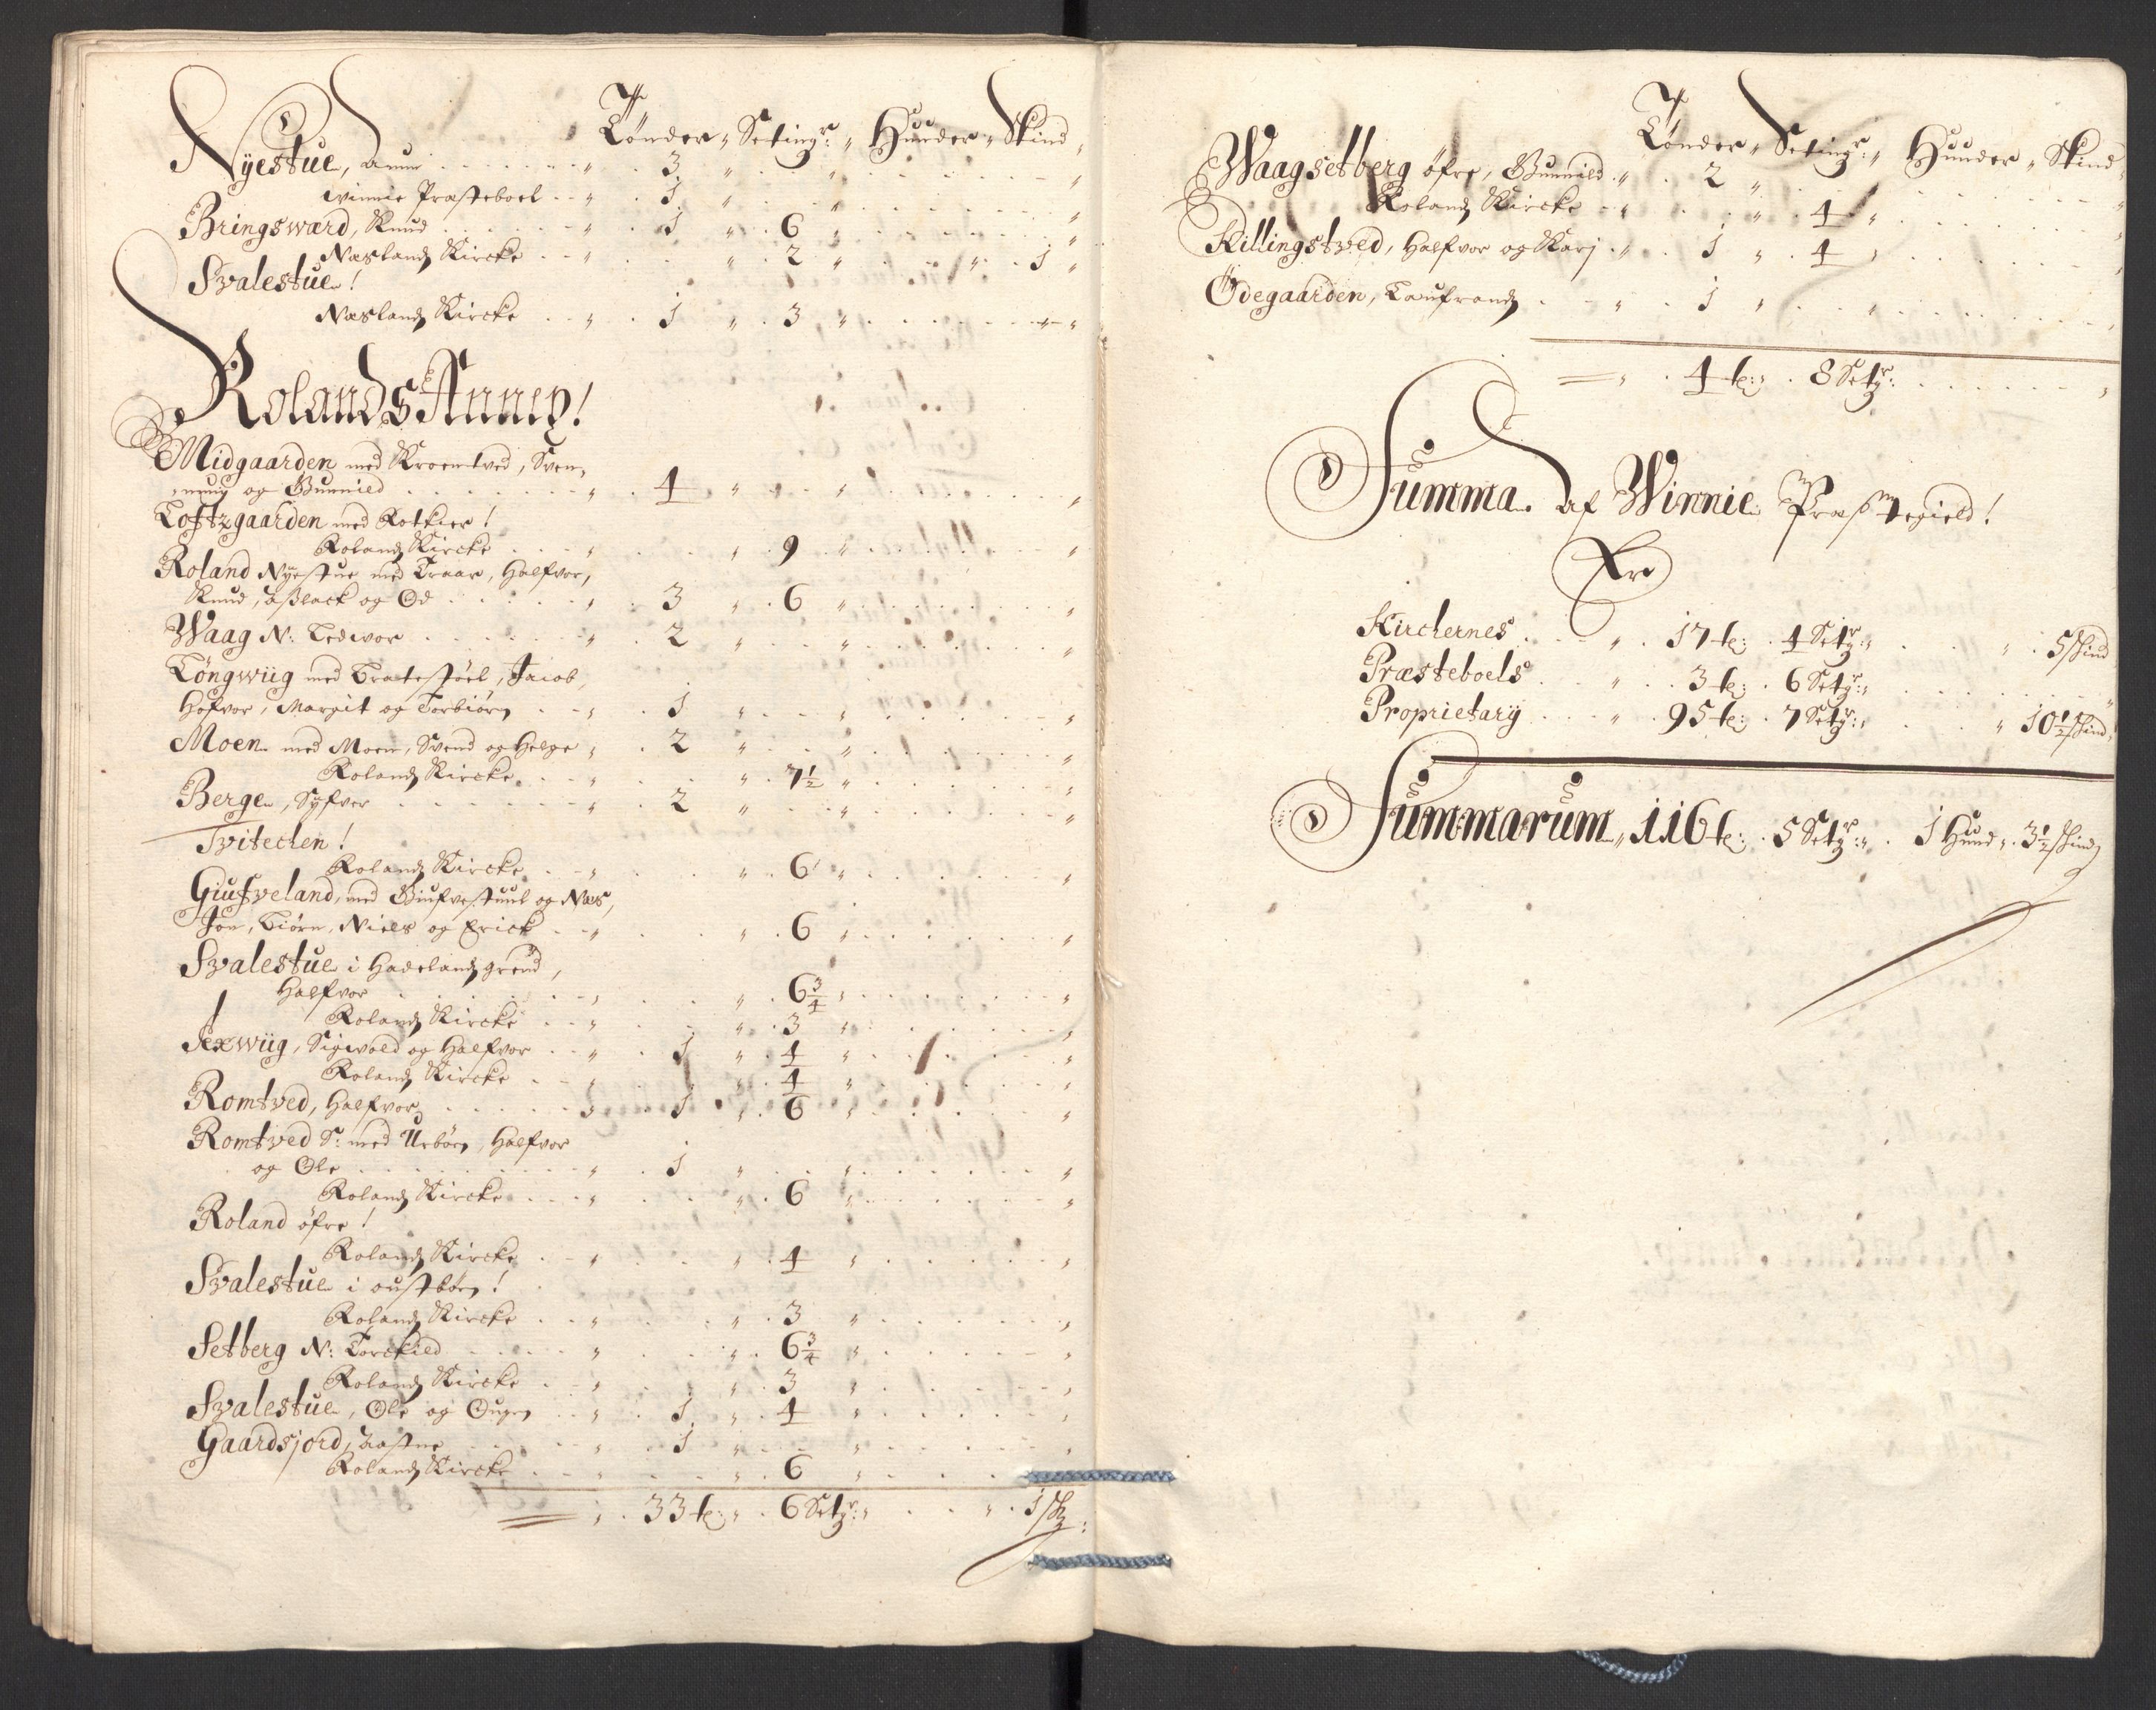 Tønder „ Setingr: „ Huuder „ Skind
Nyestue, Aanund . . . „ . 3 „ . „ . . . „
Winnie Præsteboel . . „ . 1 „ . „ . . . „
Bringsværd, Knud . . . „ . 1 „ . 6 „ . . . „
Næslands Kircke . . „ . . „ . 2 „ . . „ . 1 „
Svalestue!
Næslands Kircke . . „ . 1 „ . 3 „ . . . „
Rolands Annex!
Midgaarden med Kroentved, Sven,
„nung og Gunnild . . . „ . 4 „ . „ . . . „
Toftzgaarden med Rotkier!
Rolands Kircke . . . „ . . „ . 9 „ . . . „
Roland Nyestue med Traar, Halfvor,
Knud, Aßlack og Od . . . „ . 3 „ . 6 „ . . . „
Waag N: Ledvor . . . „ . 2 „ . „ . . . „
Töngwiig med Tratestöel, Jacob,
Hofvor, Margit og Torbiörn . . „ . 1 „ . „ . . . „
Moen med Moen, Svend og Helge „ . 2 „ . „ . . . „
Rolands Kircke . . „ . . „ . 7½ „ . . . „
Berge, Syfver . . . „ . 2 „ . „ . . . „
Tvitecten!
Rolands Kircke . . „ . . „ . 6 „ . . . „
Giufveland, med Giufvestuul og Næs,
Jon, Biörn, Niels og Erick . . „ . . „ . 6 „ . . . „
Svalestue i Hadelands grend,
Halfvor . . . „ . . „ . 6¾ „ . . . „
Rolands Kircke . . „ . . „ . 3 „ . . . „
Sexwiig, Sigvald og Halfvor . . „ . 1 „ . 4 „ . . . „
Rolands Kircke . . „ . . „ . 4 „ . . . „
Romtved, Halfvor . . . „ . 1 „ . 6 „ . . . „
Romtved S: med Urböen, Halfvor
og Ole . . . „ . 1 „ . „ . . . „
Rolands Kircke . . . „ . . „ . 6 „ . . . „
Roland öfre!
Rolands Kircke . . „ . . „ . 4 „ . . . „
Svalestue i oustbön!
Rolands Kircke . . „ . . „ . 3 „ . . . „
Setberg N: Torckild . . . „ . . „ . 6¾ „ . . . „
Rolands Kircke . . „ . . „ . 3 „ . . . „
Svalestue, Ole og Ougen . . „ . 1 „ . 4 „ . . . „
Gaardsjord, Aasne . . . „ . 1 „ . „ . . . „
Rolands Kircke . . „ . . „ . 6 „ . . . „
„ . 33 t: „ . 6 Setgr: „ . . „ . 1 sk:
Tønder „ Setingr: „ Huuder „ Skind
Waagsetberg öfre, Gunnild . „ . 2 „ . . . „
Rolands Kircke . „ . . „ . 4 „ . . . „
Killingstved, Halfvor og Karj . „ . 1 „ . 4 „ . . . „
Ödegaarden, Toufrands . . „ . 1 „ . „ . . . „
„ . 4 t: „ . 8 Setgr: . . . „
Summa af Winnie Præstegield!
Er
Kirckernes . „ . 17 t: . 4 Setgr: „ . . „ . 5 skind
Præsteboels . „ . 3 t: . 6 Setgr: „ . . . „
Proprietary . . „ . 95 t: . 7 Setgr: „ . . „ 10½ skind,
Summarum „ 116 t: . 5 Setgr: „ . 1 Huud „ . 3½ skind